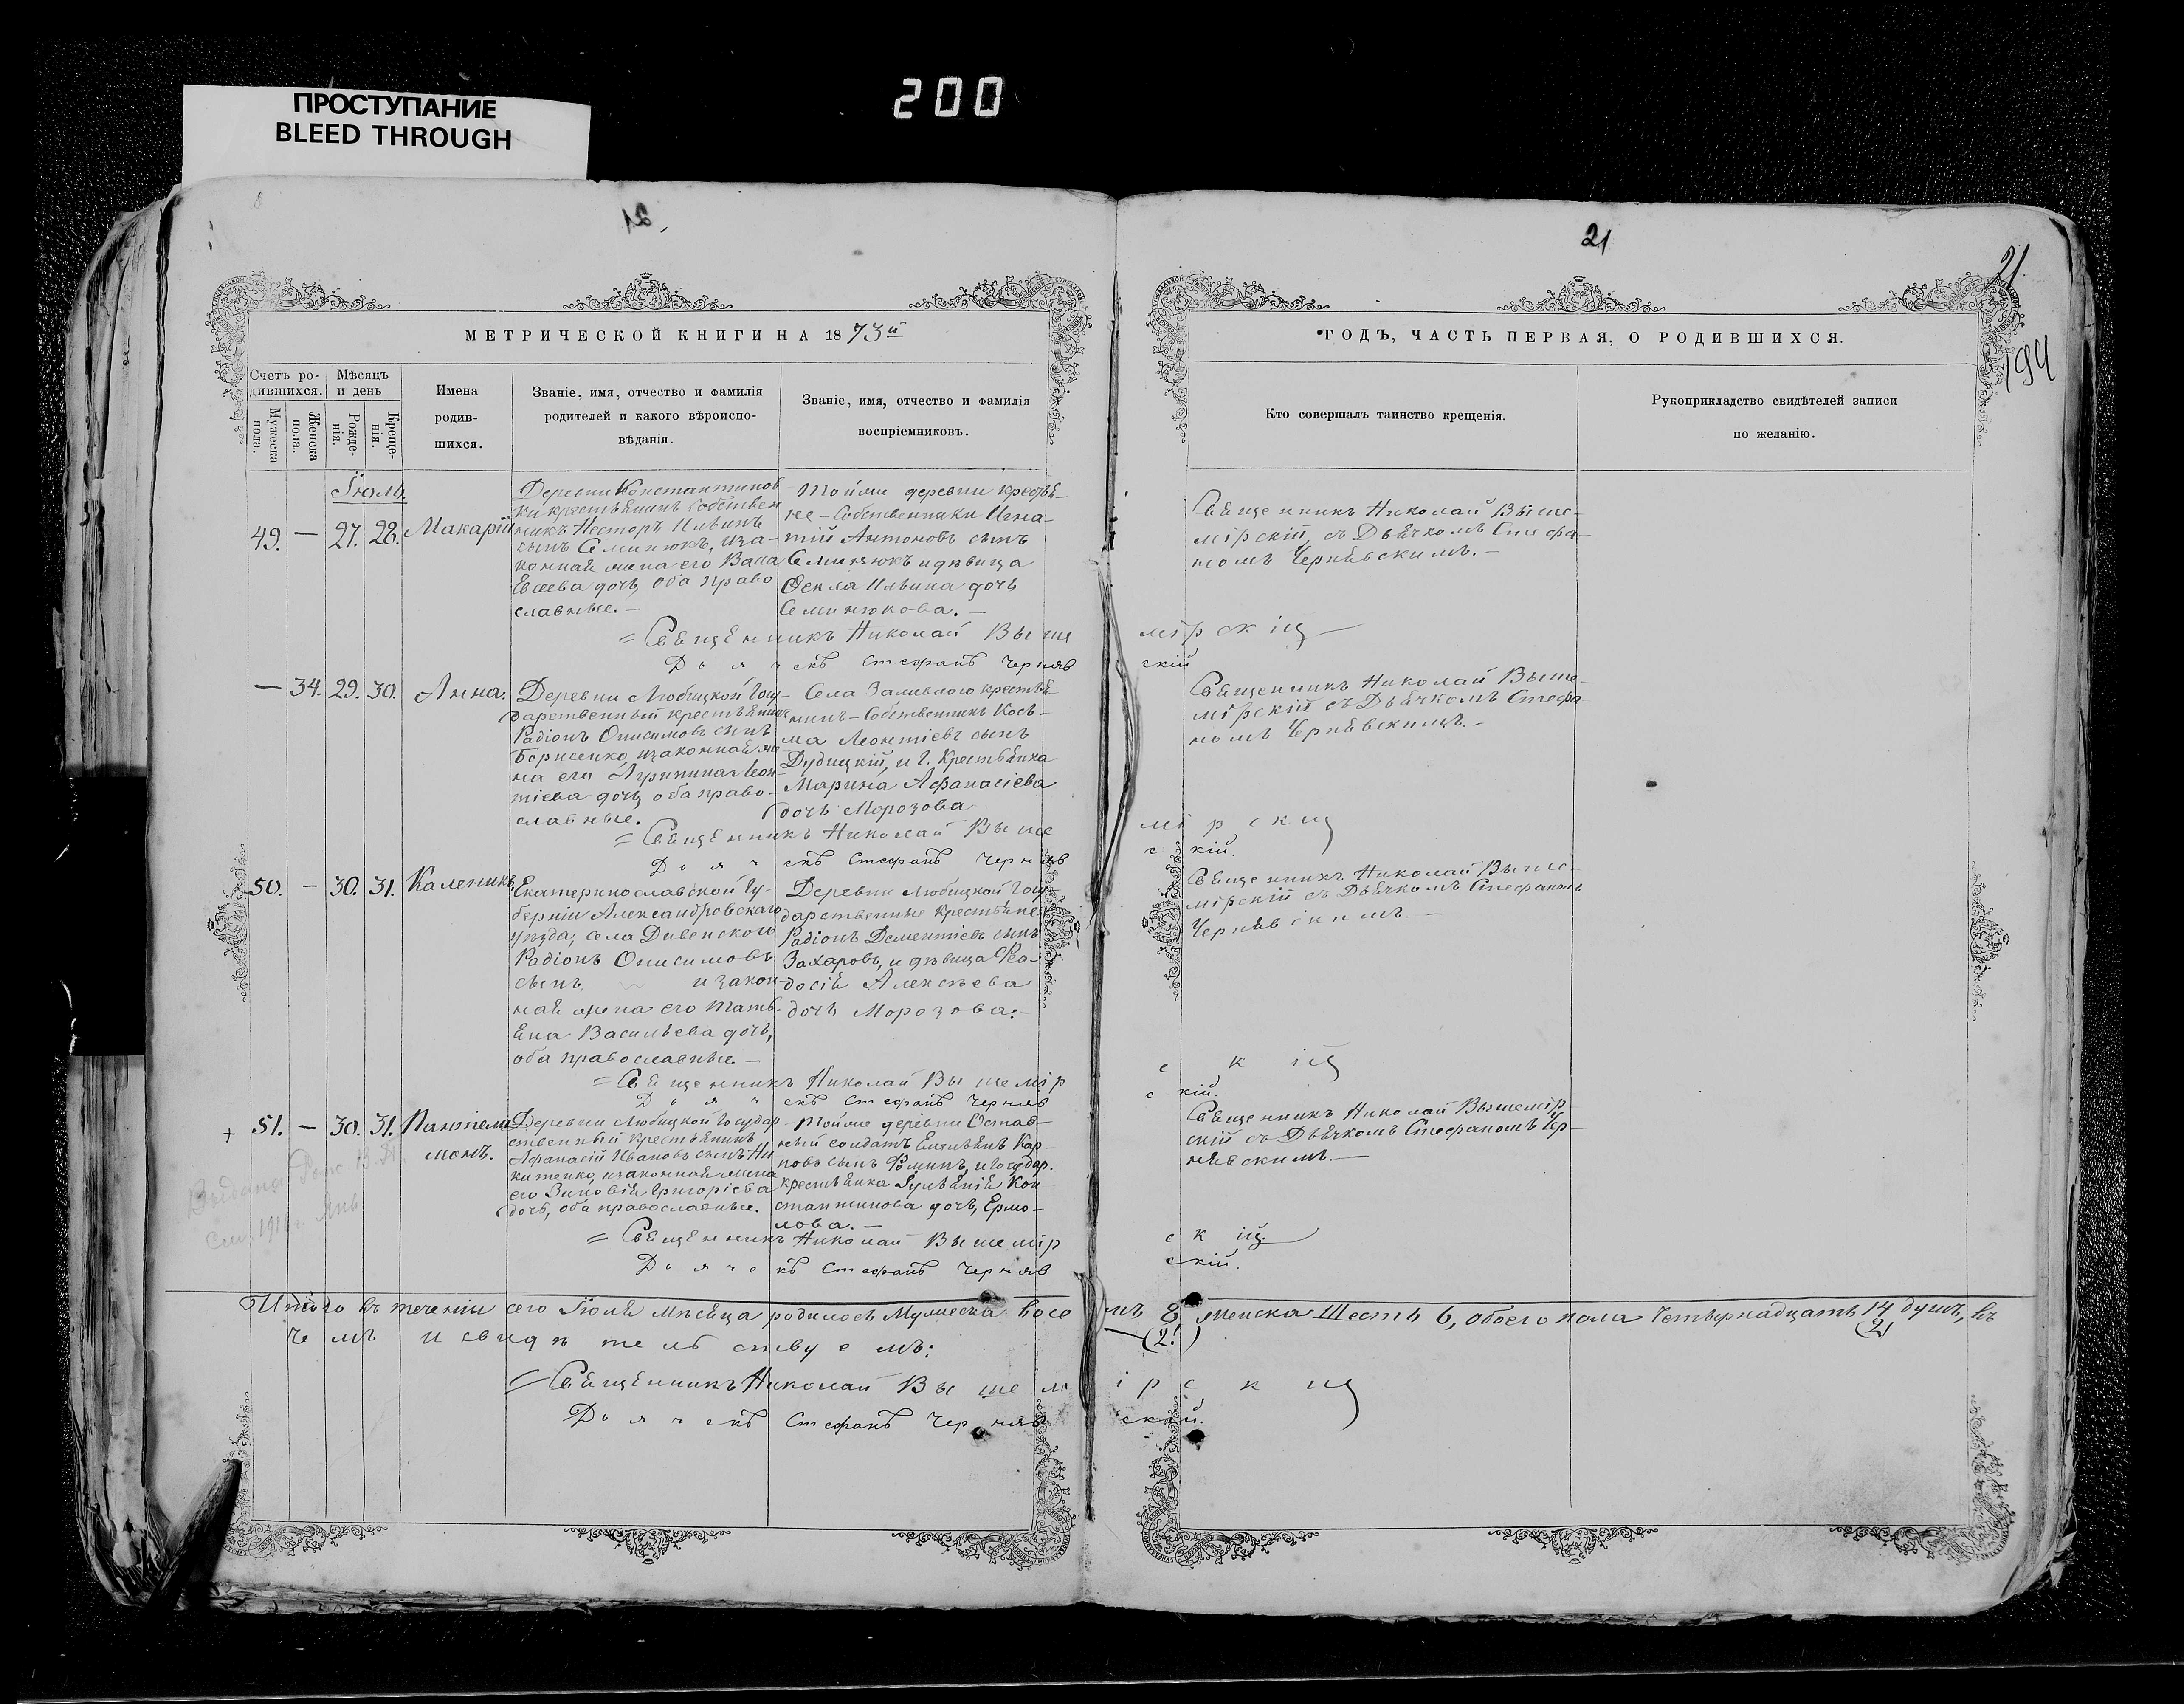 200
ПРОСТУПАНИЕ
BLEED THROUGH
21
21
21.
194
МЕТРИЧЕСКОЙ КНИГИ НА 1873й
ГОДЪ, ЧАСТЬ ПЕРВАЯ, О РОДИВШИХСЯ.
Счетъ ро-
дившихся.
Мужеска
пола.
Женска
пола.
Мѣсяцъ
и день
Рожде-
нія.
Креще-
нія.
Имена
родив-
шихся.
Званіе, имя, отчество и фамилія
родителей и какого вѣроиспо-
вѣданія.
Званіе, имя, отчество и фамилія
воспріемниковъ.
Кто совершалъ таинство крещенія.
Рукоприкладство свидѣтелей записи
по желанію.
Іюль.
49. — 27. 28. Макарій
Деревни Константинов
ки крестьянинъ Собствен
никъ Несторъ Ильинъ
сынъ Семинюкъ, и за-
конная жена его Васса
Евсеева дочь, оба право
славные. —
Тойже деревни крестья-
не — Собственники Игна-
тій Антоновъ сынъ
Семинюкъ и дѣвица
Фекла Ильина дочь
Семинюкова. —
Священникъ Николай Выше-
мірскій, съ Дьячкомъ Стефа-
номъ Чернявскимъ. —
= Священникъ Николай Вышемірскій
Дьячекъ Стефанъ Чернявскій
— 34. 29. 30. Анна.
Деревни Любицкой Госу-
дарственный крестьянинъ
Радіонъ Онисимовъ сынъ
Борисенко, и законная же-
на его Агрипина Леон-
тіева дочь, оба право-
славные.
Села Заливного крестья
нинъ — Собственникъ Козь-
ма Леонтіевъ сынъ
Дудицкій, и Г. Крестьянка
Марина Афанасіева
дочь Морозова
Священникъ Николай Выше-
мірскій съ Дьячкомъ Стефа-
номъ Чернявскимъ. —
= Священникъ Николай Вышемірскій
Дьячекъ Стефанъ Чернявскій.
50. — 30. 31. Каленикъ
Екатеринославской Гу-
берніи Александровскаго
уѣзда, села Дивенскои
Радіонъ Онисимовъ
сынъ и закон-
ная жена его Тать-
яна Васильева дочь,
оба православные. —
Деревни Любицкой Госу-
дарственные крестьяне
Радіонъ Дементіевъ сынъ
Захаровъ, и дѣвица Фео-
досія Алексѣева
дочь Морозова. —
Священникъ Николай Выше-
мірскій съ Дьячкомъ Стефаномъ
Чернявскимъ. —
= Священникъ Николай Вышемірскій
Дьячекъ Стефанъ Чернявскій.
+ 51. — 30. 31. Пантелеи
монъ.
Деревни Любицкой Государ
ственный крестьянинъ
Афанасій Ивановъ сынъ Ни
китенко, и законная жена
его Зиновія Григоріева
дочь, оба православные.
Тойже деревни Остав-
ный солдатъ Емельянъ Кар-
повъ сынъ Фоминъ, и Государ.
крестьянка Іуліанія Кон
стантинова дочь, Ермо-
лова. —
Священникъ Николай Вышемір
скій съ Дьячкомъ Стефаномъ Чер-
нявскимъ. —
= Священникъ Николай Вышемірскій.
Дьячекъ Стефанъ Чернявскій.
Итого въ теченіи сего Іюля мѣсяца родилось Мужеска Восемь 8 Женска Шесть 6, обоего пола Четырнадцать 14 душъ, въ
чемъ и свидѣтельствуемъ:
= Священникъ Николай Вышемірскій
Дьячекъ Стефанъ Чернявскій.